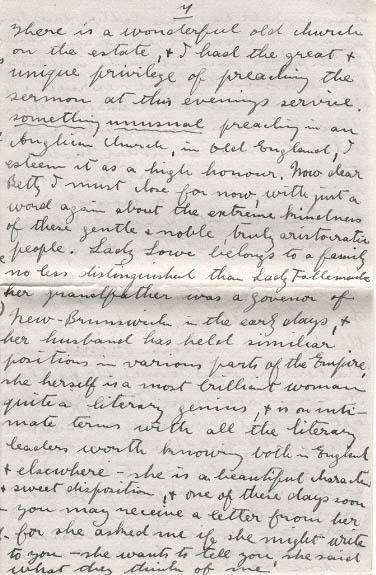 4
There is a wonderful old church
on the estate, & I had the great &
unique privilege of preaching the
sermon at this evenings service.
something unusual preaching in an
Anglican Church, in old England, I
esteem it as a high honour. Now dear
Betty I must close for now, with just a
word again about the extreme kindness
of these gentle & noble, truly aristocratic
people. Lady Lowe belongs to a family
no less distinguished than Lady Tallemache
her grandfather was a govenor of
New-Brunswick in the early days, &
her husband has held similiar
positions in various parts of the Empire,
she herself is a most brilliant woman
quite a literary genius, & is on inti-
mate terms with all the literary
leaders worth knowing both in England
& elsewhere - she is a beautiful character
& sweet disposition, & one of these days soon
you may receive a letter from her
for she asked me if she might write
to you - she wants to tell you, she said
what they think of me